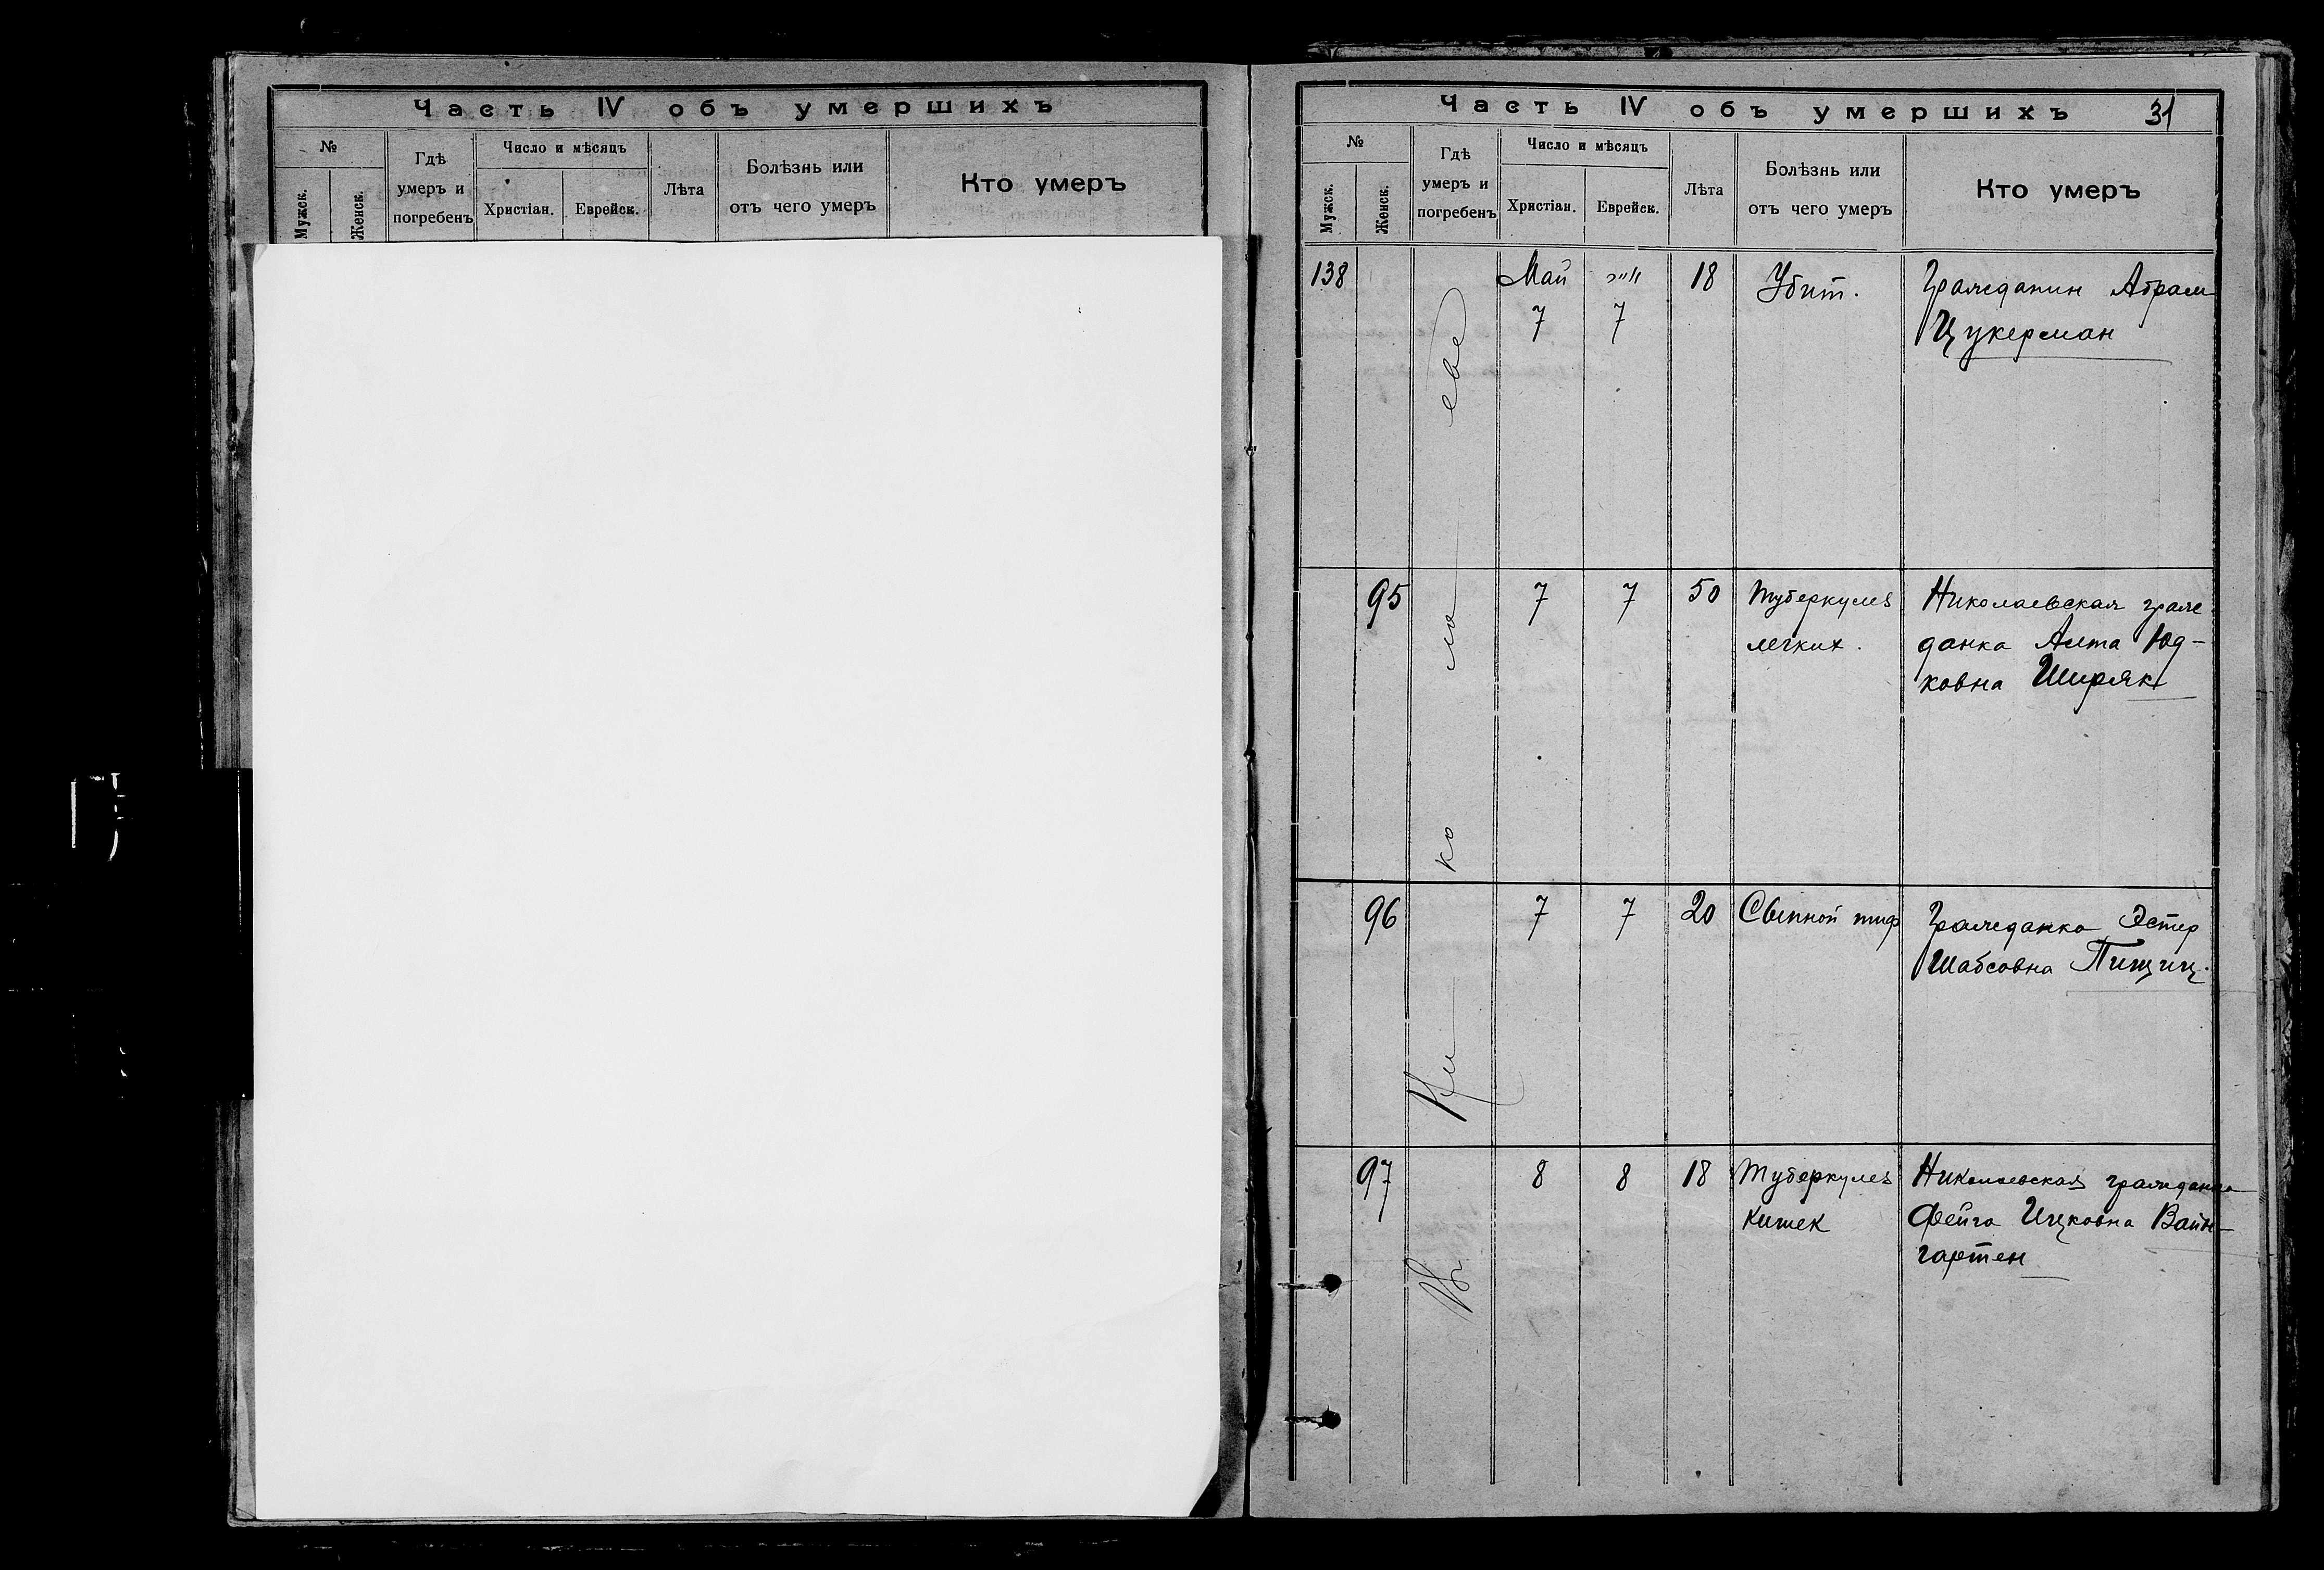 Часть IV объ умершихъ
№
Мужск.
Женск.
Гдѣ
умеръ и
погребенъ
Число и мѣсяцъ
Христіан.
Еврейск.
Лѣта
Болѣзнь или
отъ чего умеръ
Кто умеръ
Часть IV объ умершихъ 31
№
Мужск.
Женск.
Гдѣ
умеръ и
погребенъ
Число и мѣсяцъ
Христіан.
Еврейск.
Лѣта
Болѣзнь или
отъ чего умеръ
Кто умеръ
В Ни ко ла еве
138 Май 18 Убит. Гражданин Абрам
7 7 Цукерман
95 7 7 50 Туберкулез Николаевская граж
легких. данка Алта Юд-
ковна Ширяк
96 7 7 20 Сыпной тиф Гражданка Эстер
Шабсовна Пищиц.
97 8 8 18 Туберкулез Николаевская гражданка
Кишек Фейга Ицковна Вайн-
гартен